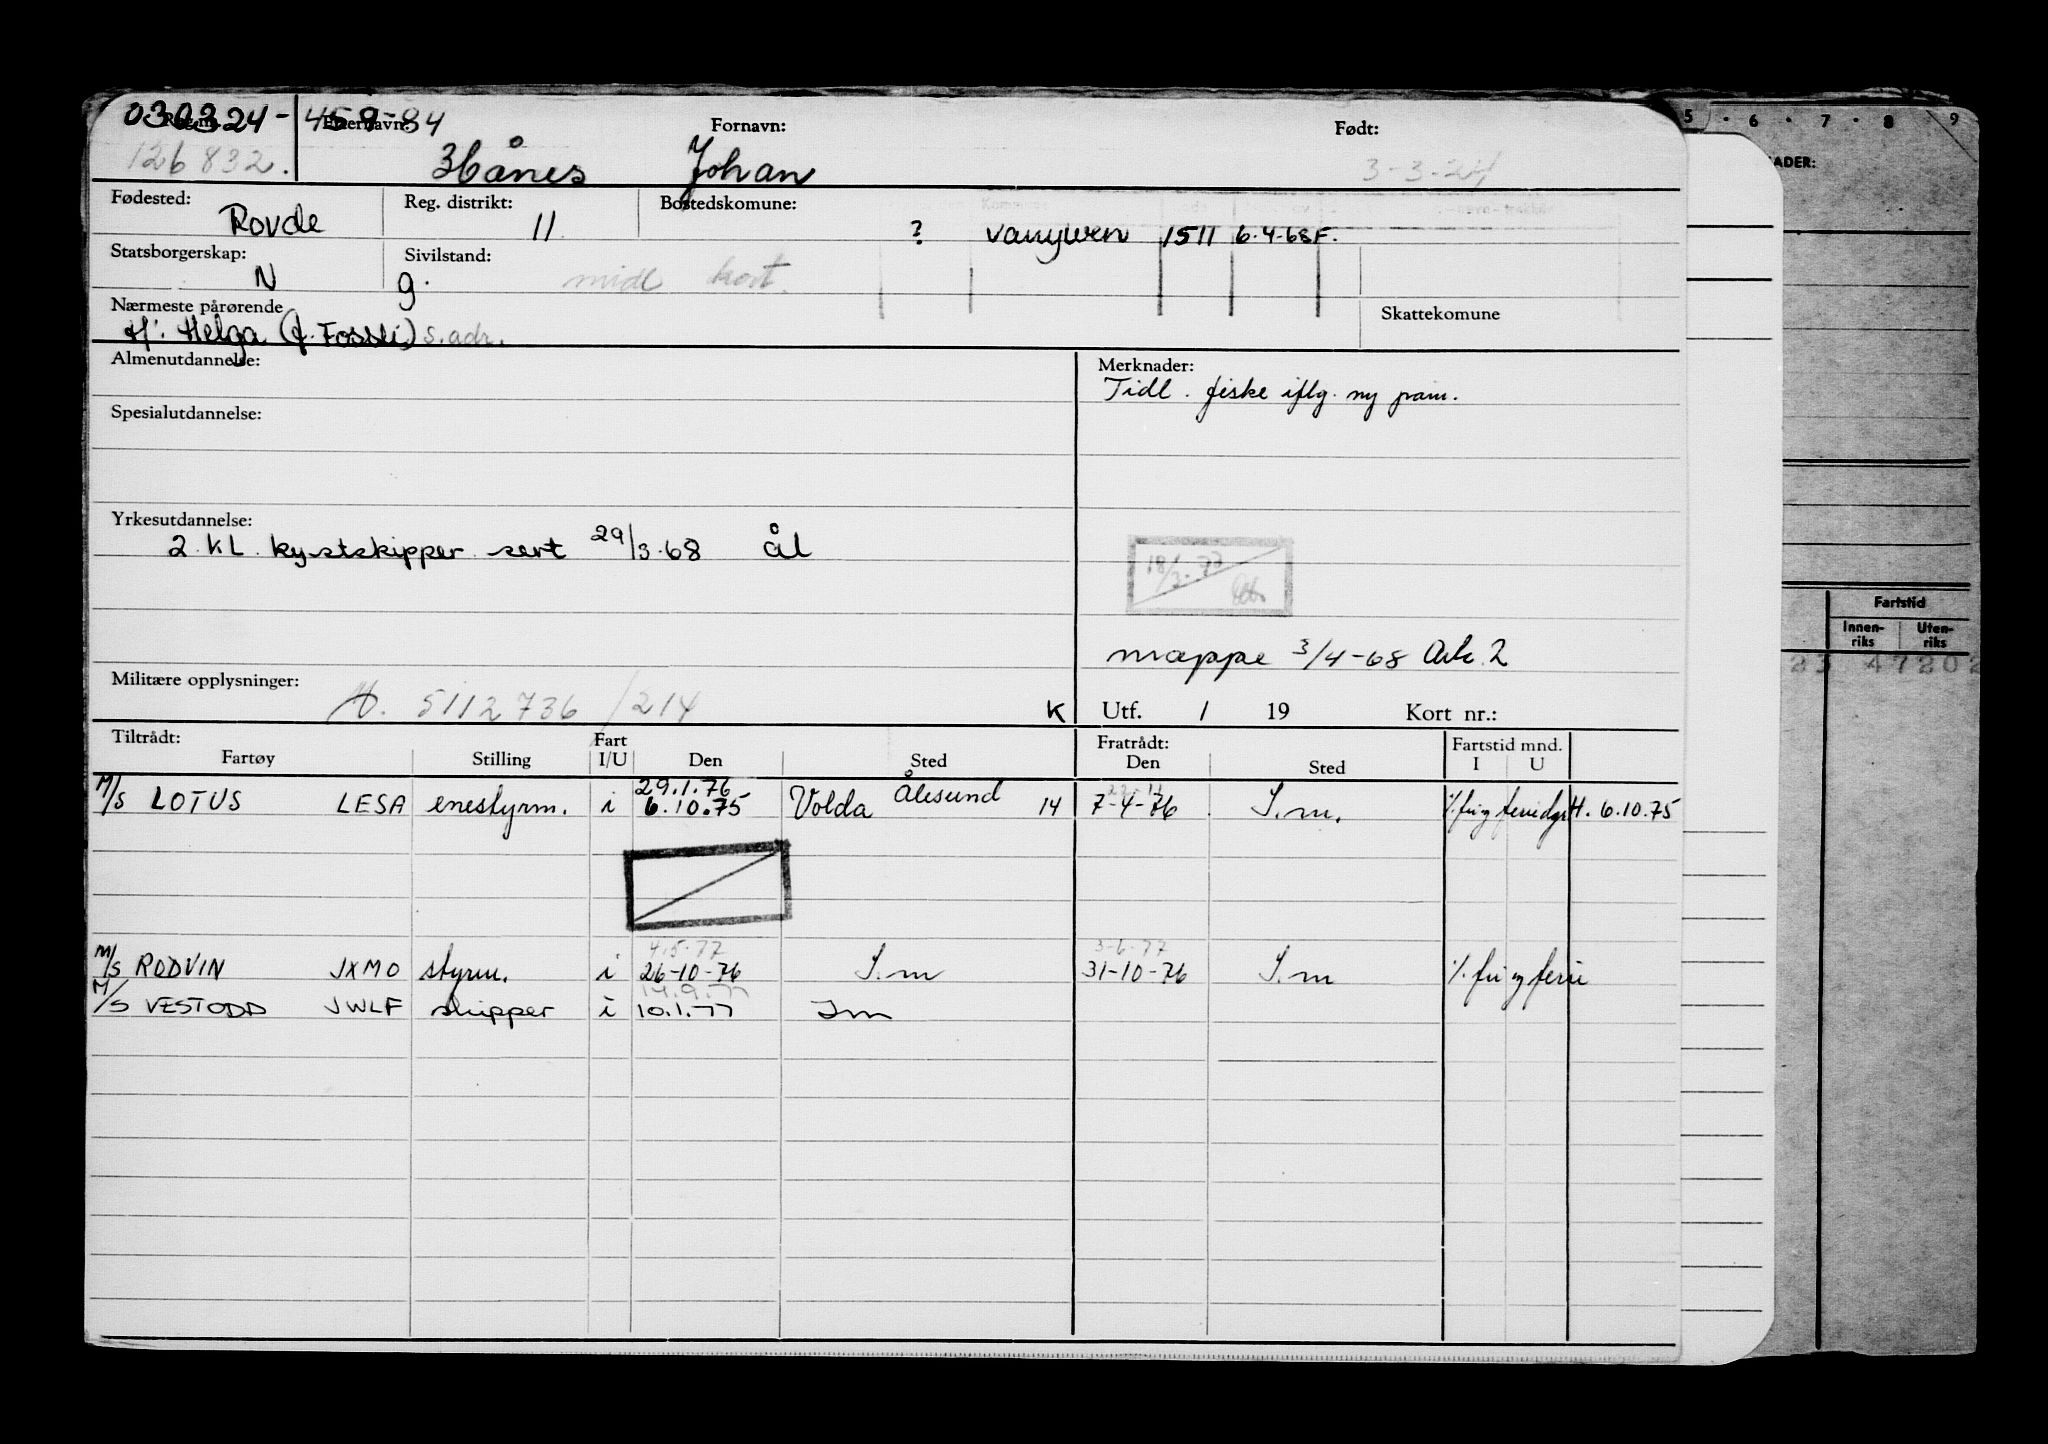 030324-45984
Reg.nr. Etternavn: Fornavn: Født:
126832. Hånes Johan 3-3-24
Fødested: Reg. distrikt: Bostedskomune:
Rovde 11 ? Vanylven 1511 6.4.68 F.
Statsborgerskap: Sivilstand:
N g. midl kort.
Nærmeste pårørende Skattekomune
H: Helga (f. Fossli) s.adr.
Almenutdannelse: Merknader:
Tidl. fiske iflg. ny
Spesialutdannelse:
Yrkesutdannelse:
2 KL kystskipper sert 29/3-68 ål
mappe 3/4-68 2
Militære opplysninger:
5112736/214 K Utf. / 19 Kort nr.:
Tiltrådt: Fart Fratrådt: Fartstid mnd.
Fartøy Stilling I/U Den Sted Den Sted I U
29.1.76 Ålesund
M/S LOTUS LESA enestyrm. i 6.10.75 Volda 14 7-4-76 S.m. H. 6.10.75
4.5.77 3-6-77
M/S RODVIN JXMO styrm. i 26-10-76 S.m 31-10-76 S.m ./. fri og ferie
14.9.77
M/S VESTODD JWLF skipper i 10.1.77 Sm
5 · 6 · 7 · 8 9
ADER:
Fartstid
Innen-riks Uten-riks
23 47202